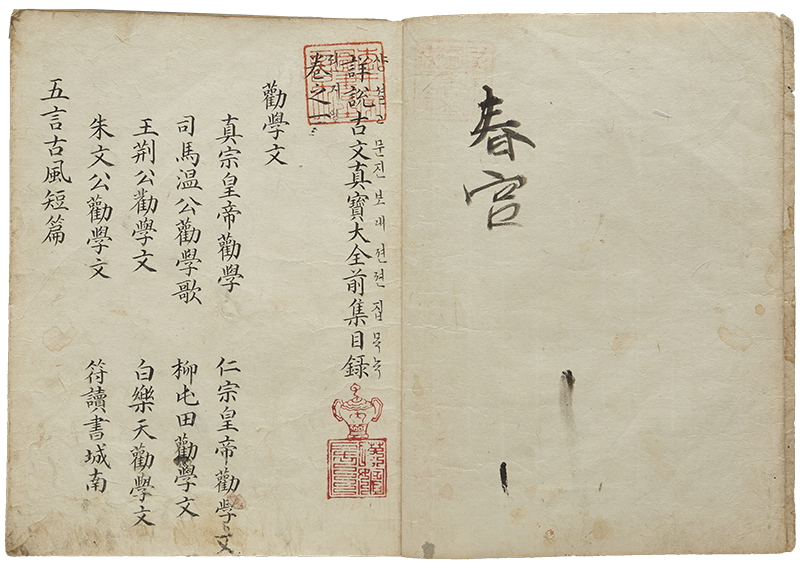 春宮
샹셜고문진보대젼젼집목녹
詳說古文真寶大全前集目錄
권지일
卷之一
勸學文
真宗皇帝勸學 仁宗皇帝勸學文
司馬溫公勸學歌 柳屯田勸學文
王荊公勸學文 白樂天勸學文
朱文公勸學文 符讀書城南
五言古風短篇